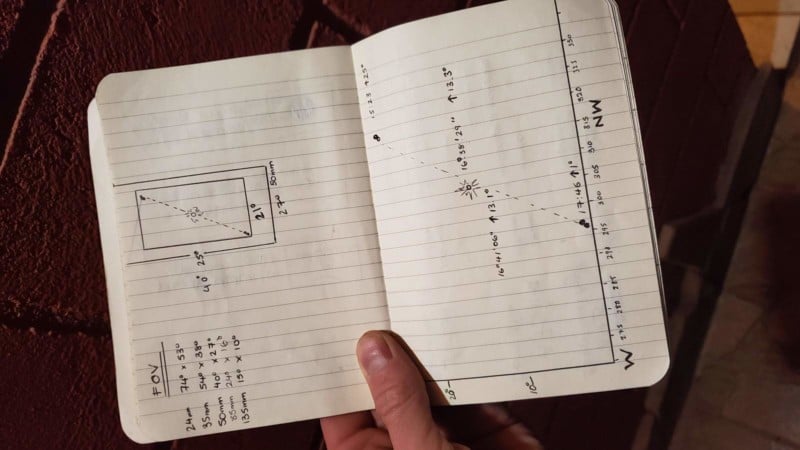 FOV
24mm 74° x 53°
35mm 54° x 38°
50mm 40° x 27°
85mm 24° x 16°
135mm 15° x 10°
40° 25°
21°
27° 50mm
15:23 ↑25°
16°38'29" ↑13.3°
16°41'06" ↑13.1°
17:46 ↑1°
20°
10°
275 280 285 290 295 300 305 310 315 320 325 330
W NW